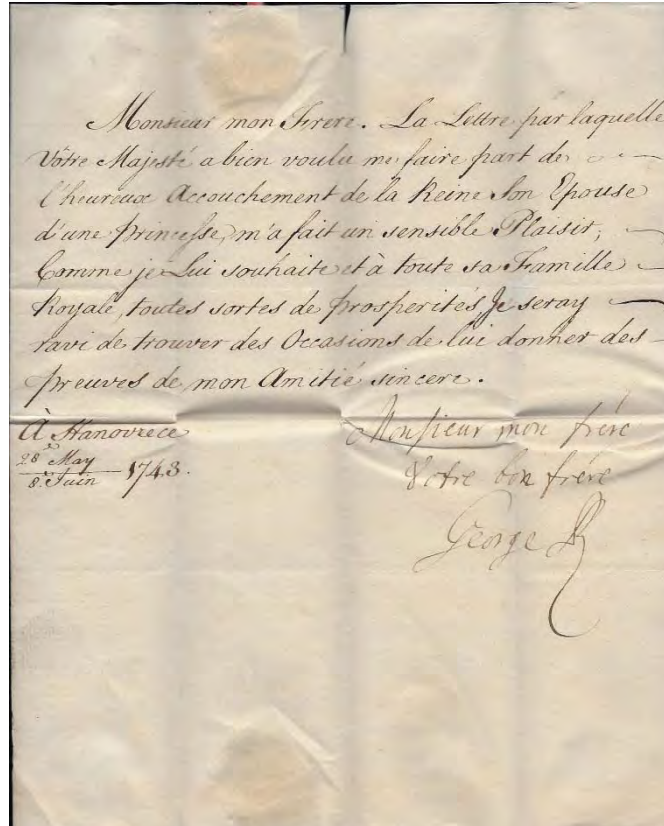 Monsieur mon Frere. La Lettre par laquelle
Vôtre Majesté a bien voulu me faire part de
l'heureux Accouchement de la Reine Son Epouse
d'une Princesse, m'a fait un sensible Plaisir;
Comme je Lui souhaite et à toute sa Famille
Royale, toutes sortes de prosperités Je seray
ravi de trouver des Occasions de lui donner des
preuves de mon Amitié sincere.
À Hanovre ce
28e May
8e Juin 1743.
Monsieur mon frére
Votre bon frére
George R